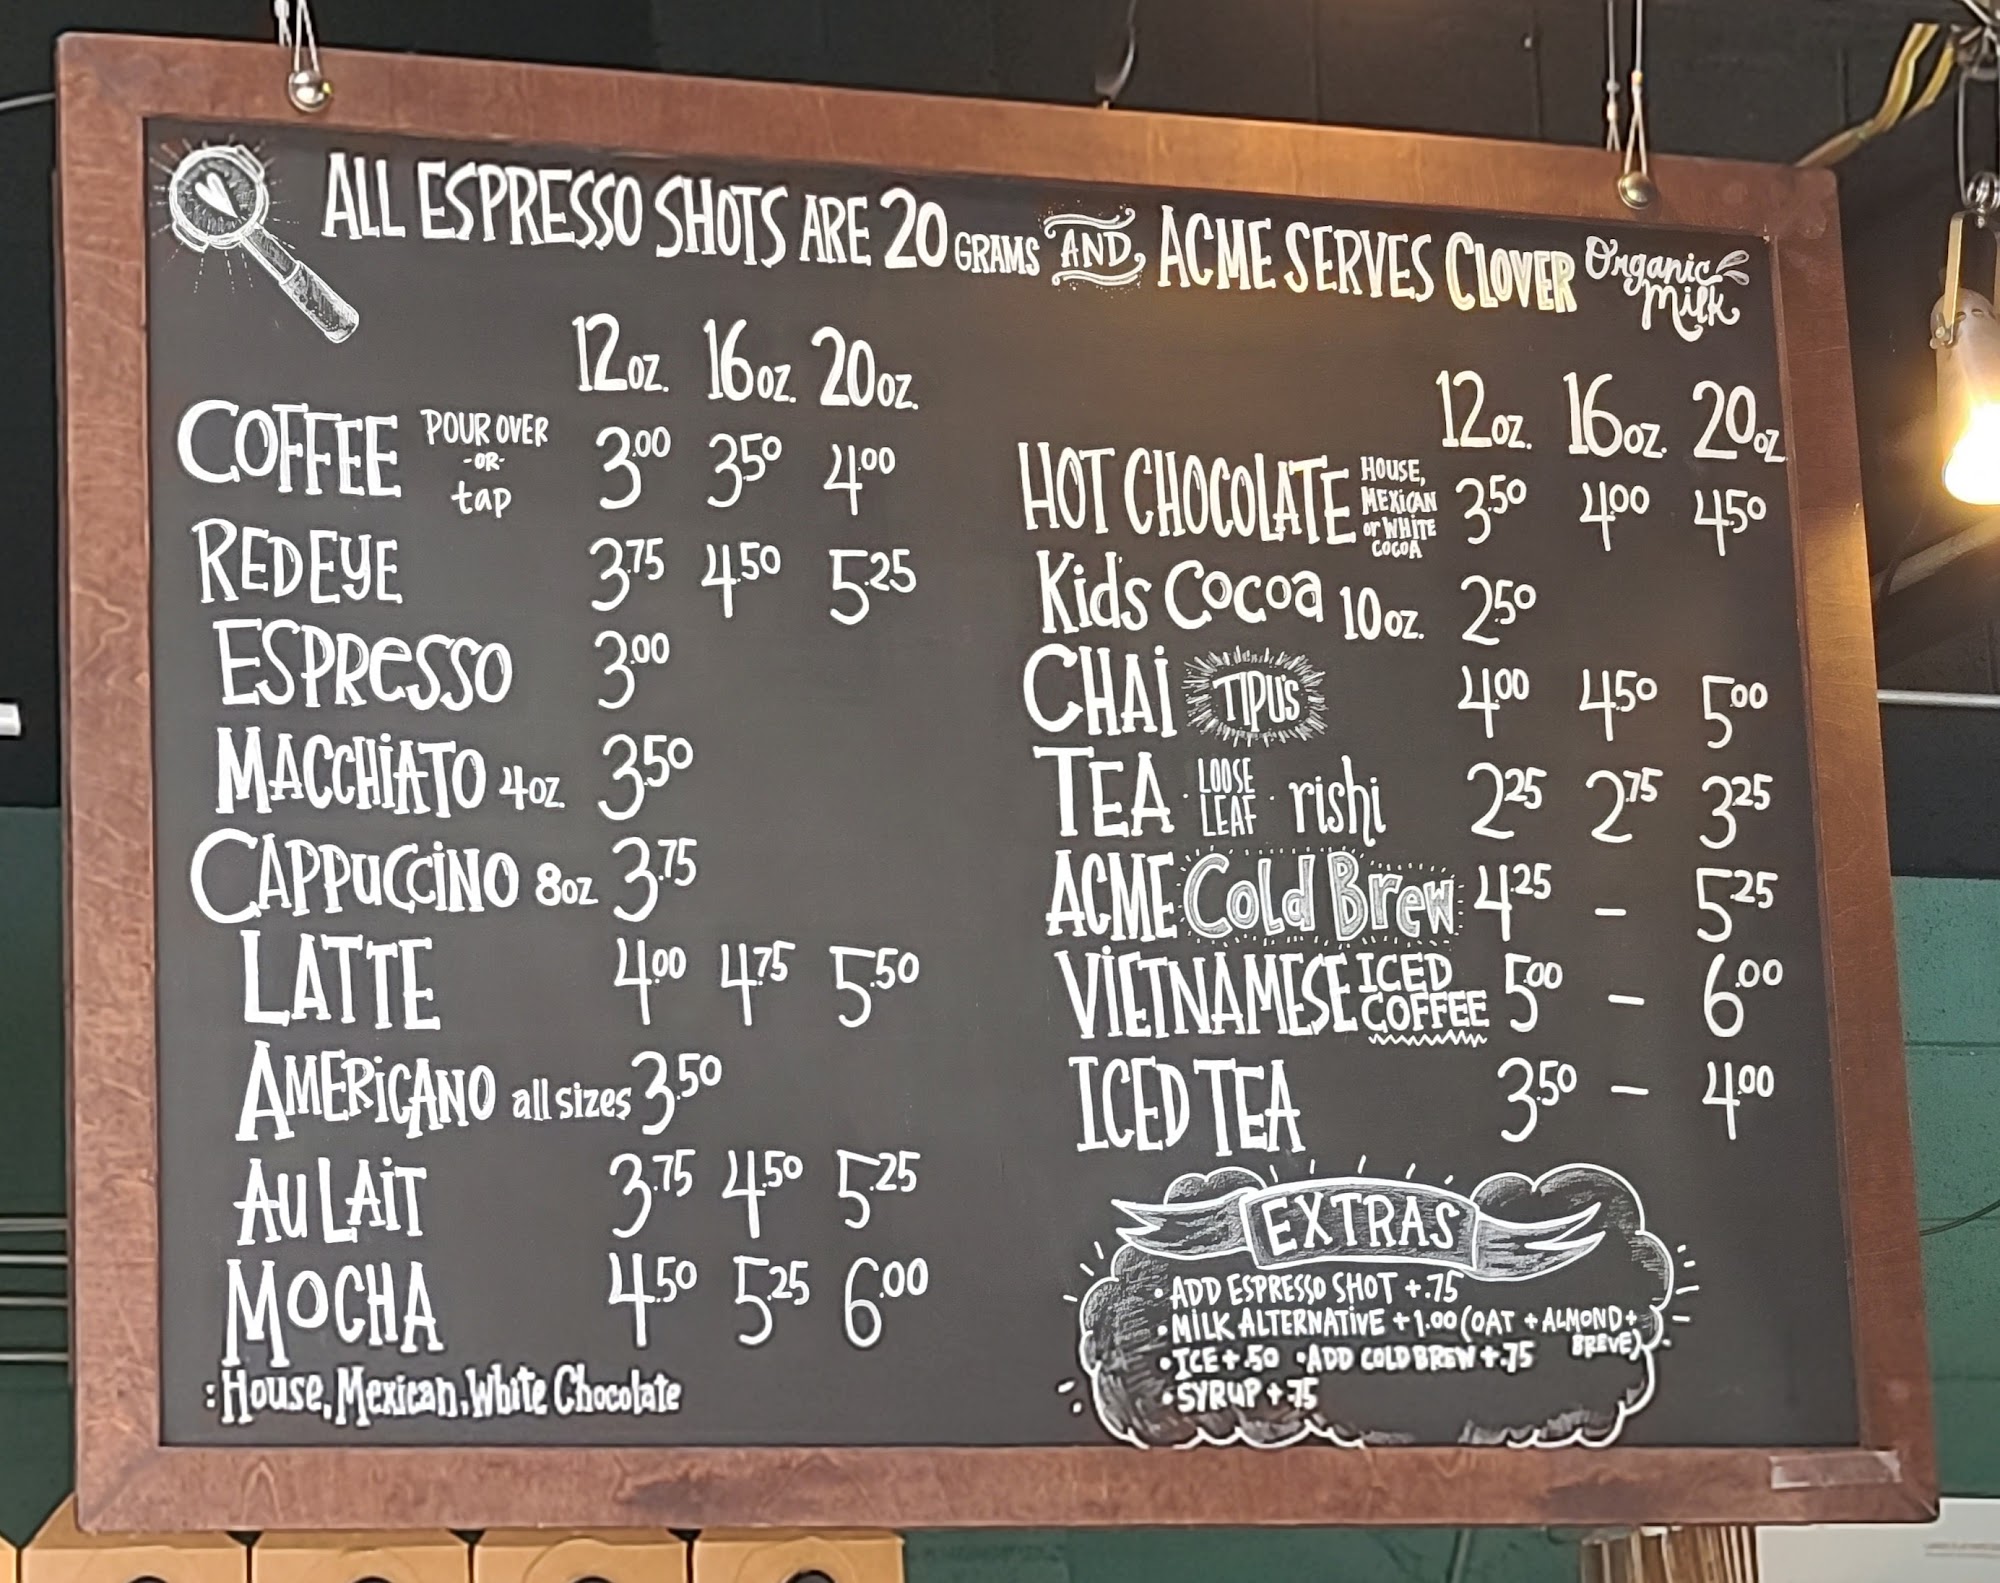 ALL ESPRESSO SHOTS ARE 20 GRAMS AND ACME SERVES CLOVER Organic Milk
12oz. 16oz. 20oz.
COFFEE POUR OVER -OR- tap 3.00 3.50 4.00
REDEYE 3.75 4.50 5.25
ESPRESSO 3.00
MACCHIATO 4oz. 3.50
CAPPUCCINO 8oz 3.75
LATTE 4.00 4.75 5.50
AMERICANO all sizes 3.50
AU LAIT 3.75 4.50 5.25
MOCHA 4.50 5.25 6.00
: House, Mexican, White Chocolate
12oz. 16oz. 20oz
HOT CHOCOLATE HOUSE, MEXICAN or WHITE COCOA 3.50 4.00 4.50
Kid's Cocoa 10oz. 2.50
CHAI TIPU'S 4.00 4.50 5.00
TEA · LOOSE LEAF · rishi 2.25 2.75 3.25
ACME Cold Brew 4.25 – 5.25
VIETNAMESE ICED COFFEE 5.00 – 6.00
ICED TEA 3.50 – 4.00
EXTRAS
• ADD ESPRESSO SHOT +.75
• MILK ALTERNATIVE +1.00 (OAT + ALMOND + BREVE)
• ICE +.50 • ADD COLD BREW +.75
• SYRUP +.75